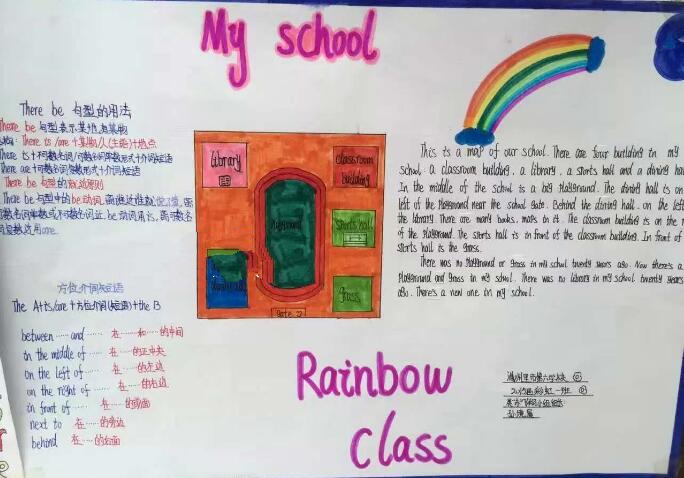 My school
There be 句型的用法
There be 句型表示某地有某物
There is /are +某物/人(主语)+地点
There is +不可数名词/可数名词单数形式+介词短语
There are +可数名词复数形式+介词短语
There be 句型的就近原则
There be 句型中的be动词
方位介词短语
The A+is/are +方位介词(短语)+the B
between …… and …… 在……和……的中间
in the middle of …… 在……的正中央
on the left of …… 在……的左边
on the right of …… 在……的右边
in front of …… 在……的前面
next to 在……的旁边
behind 在……的后面
library
classroom
building
playground
sports hall
grass
gate
This is a map of our school. There are four building in my
school. a classroom building. a library. a sports hall and a dining hall
In the middle of the school is a big playground. The dining hall is on the
left of the playground near the school gate. Behind the dining hall. on the left
the library. There are many books. in it. The classroom building is on the
of the playground. The sports hall is in front of the classroom building. In front of
sports hall is the grass.
There was no playground or grass in my school twenty years ago. Now there's a
playground and grass in my school. There was no library in my school twenty years
ago. There's a new one in my school.
Rainbow
class